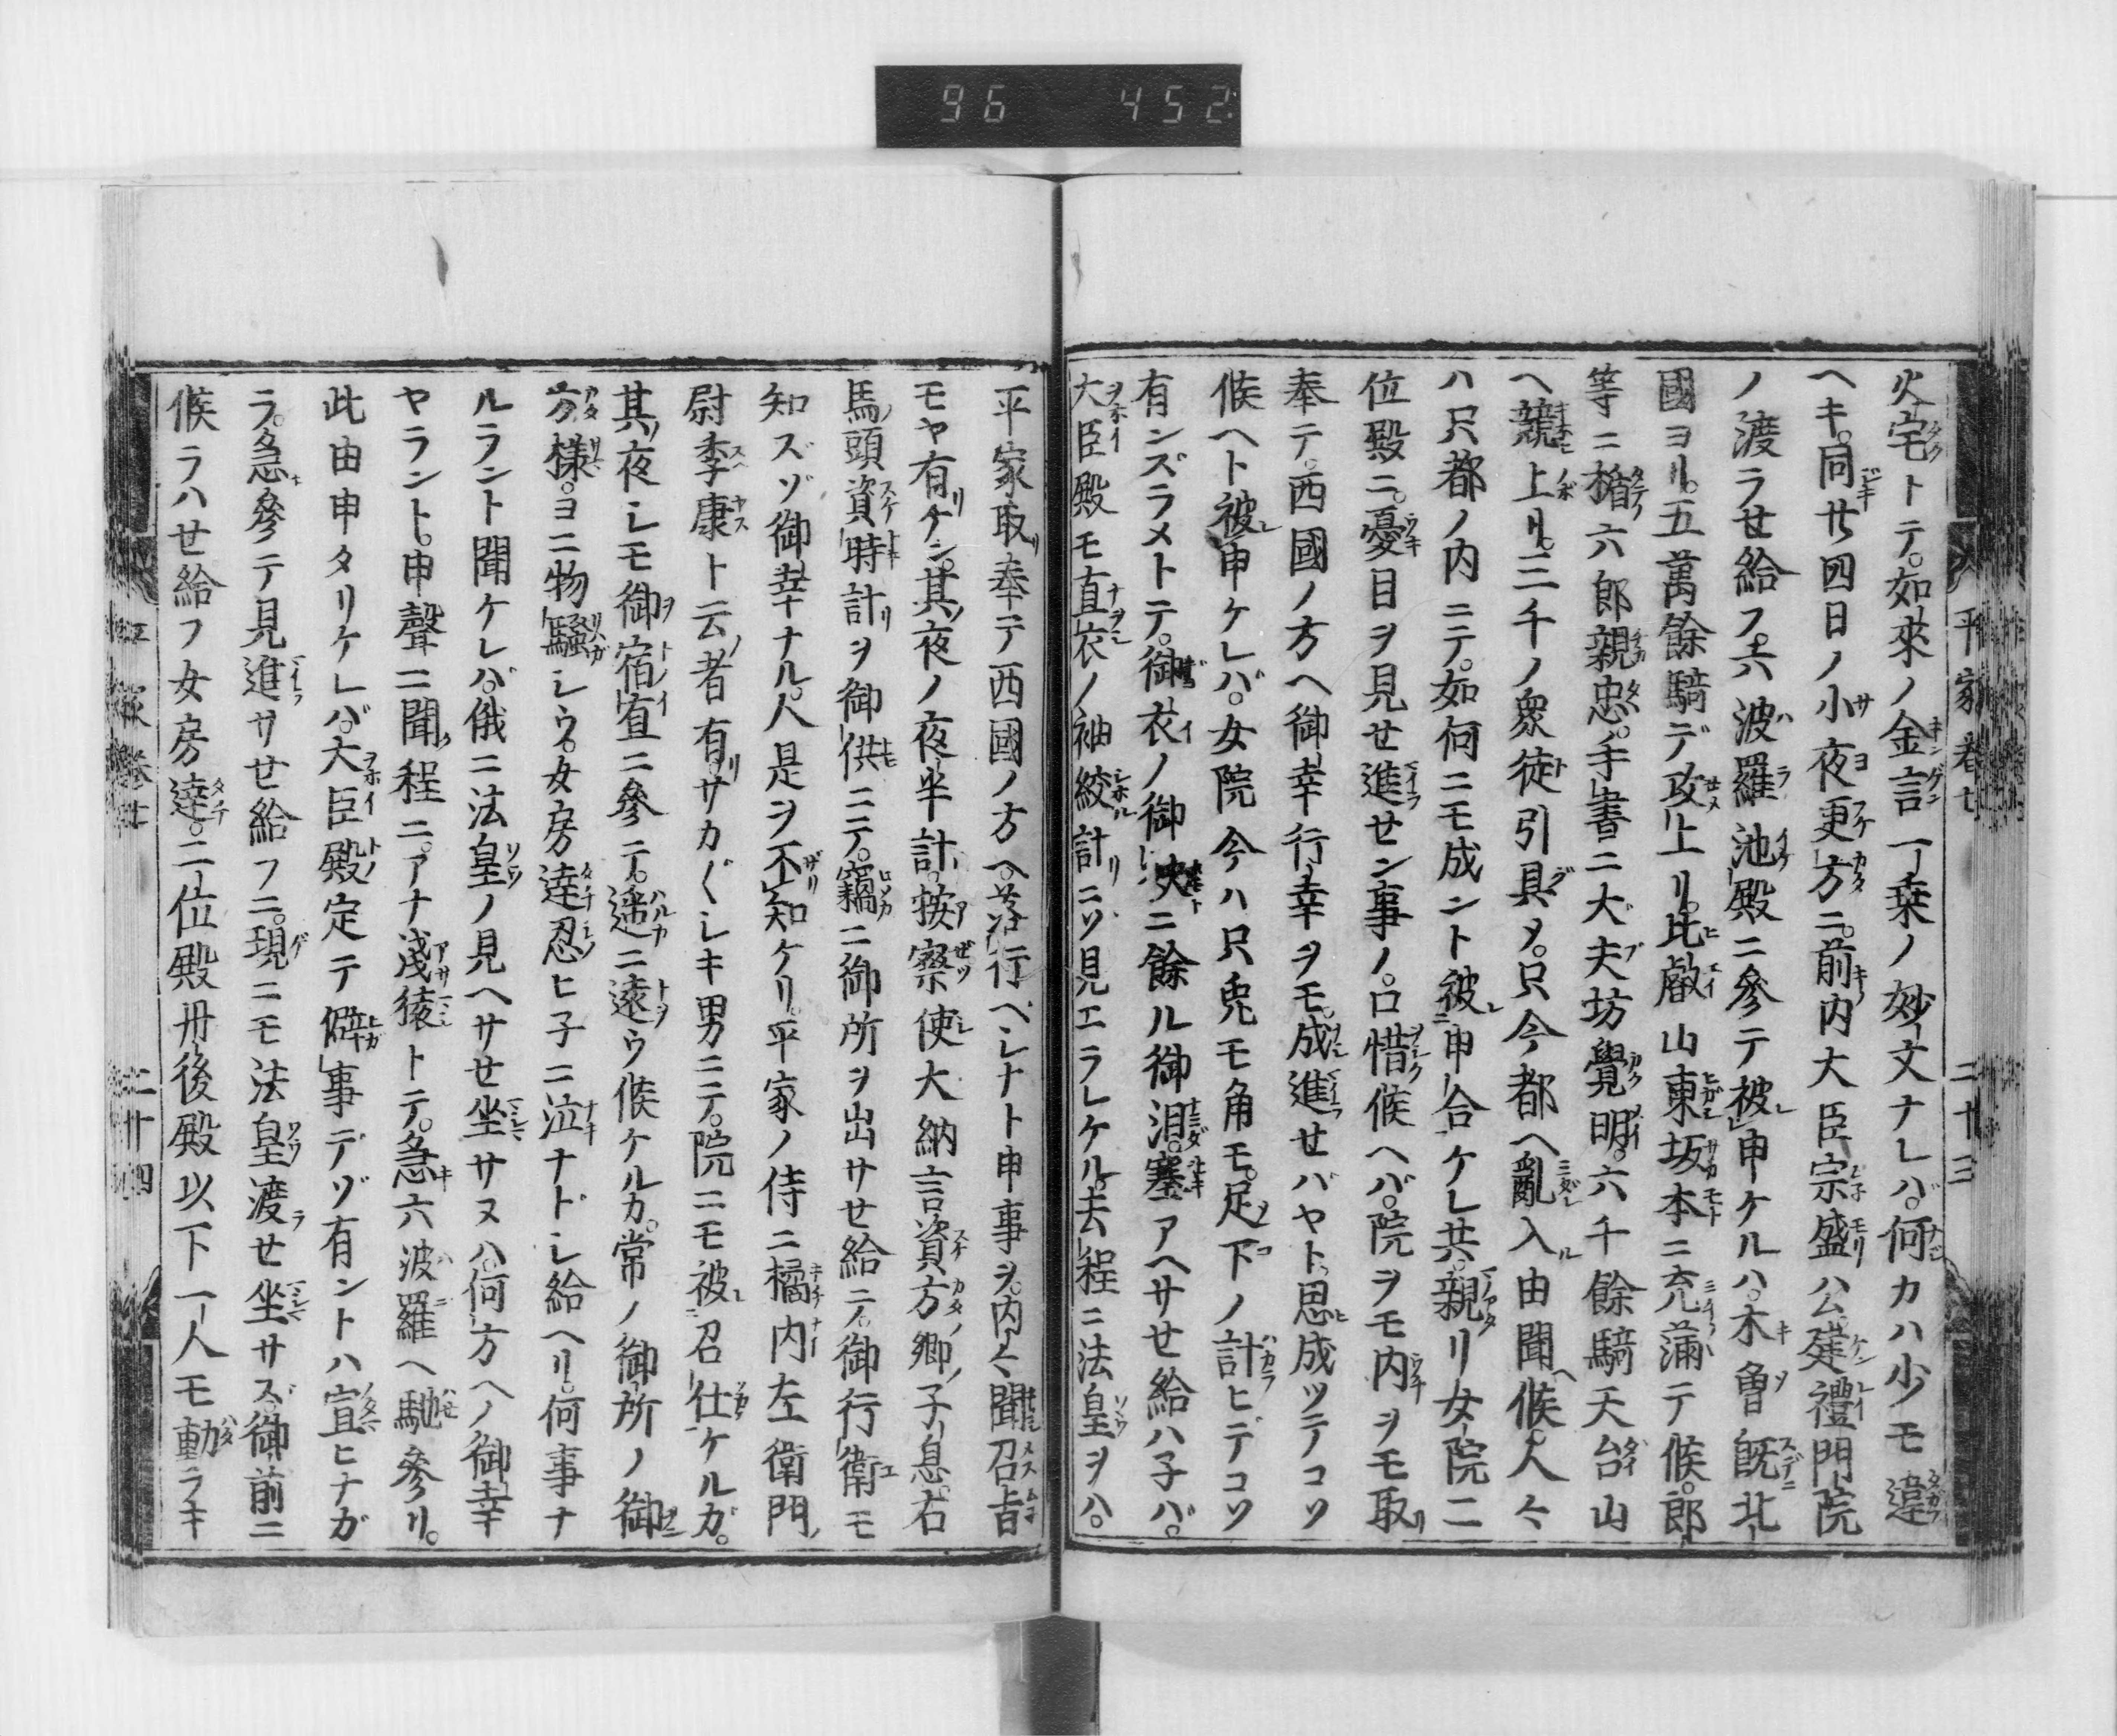 96 452
平家卷七 二十三
火宅トテ。如來ノ金言一乗ノ妙文ナレバ。何カハ少モ違
ヘキ。同廿四日ノ小夜更方ニ。前内大臣宗盛公。建禮門院
ノ渡ラせ給フ六波羅池殿ニ參テ被申ケルハ。木曾既北
國ヨリ。五萬餘騎デ攻上リ。比叡山東坂本ニ充滿テ候。郎
等ニ楯六郎親忠。手書ニ大夫坊覺明。六千餘騎天台山
ヘ競上リ。三千ノ衆徒引具ヌ。只今都ヘ亂入ル由聞ヘ候。人々
ハ只都ノ内ニテ。如何ニモ成ント被申合ケレ共。親リ女院二
位殿ニ。憂目ヲ見せ進せン事ノ。口惜候ヘバ。院ヲモ内ヲモ取
奉テ。西國ノ方ヘ御幸行幸ヲモ。成進せバヤト。思成ツテコソ
候ヘト被申ケレバ。女院今ハ只兎モ角モ。足下ノ計ヒデコソ
有ンズラメトテ。御衣ノ御袂ニ餘ル御泪。塞アヘサせ給ハ子バ。
大臣殿モ直衣ノ袖絞計ニソ見エラレケル。去程ニ法皇ヲハ。
平家取奉テ西國ノ方ヘ。落行ベシナト申事ヲ。内々聞召旨
モヤ有ケン。其夜ノ夜半計。按察使大納言資方卿ノ子息。右
馬頭資時計ヲ御供ニテ。竊ニ御所ヲ出サせ給ニテ。御行衛モ
知ズゾ御幸ナル。人是ヲ不知ケリ。平家ノ侍ニ橘内左衛門ノ
尉季康ト云者有。サカ〲シキ男ニテ。院ニモ被召仕ケルガ。
其ノ夜シモ御宿直ニ參テ。遥ニ遠ウ候ケルカ。常ノ御所ノ御
方樣。ヨニ物騷シウ。女房達忍ヒ子ニ泣ナドシ給ヘリ。何事ナ
ルラント聞ケレバ。俄ニ法皇ノ見ヘサせ坐サヌハ。何方ヘノ御幸
ヤラント。申聲ニ聞程ニ。アナ浅猿トテ。急六波羅ヘ馳參リ。
此由申タリケレバ。大臣殿定テ僻事デゾ有ントハ宣ヒナガ
ラ。急參テ見進サせ給フニ。現ニモ法皇渡せ坐サズ。御前ニ
候ラハせ給フ女房達。二位殿丹後殿以下一人モ動ラキ
平家卷七 二十四